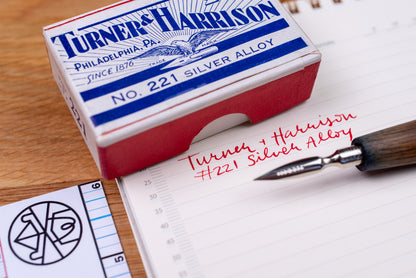 TURNER & HARRISON
PHILADELPHIA, PA.
SINCE 1876
TRADE
NO. 221 SILVER ALLOY
Turner + Harrison
#221 Silver Alloy
25
6
5